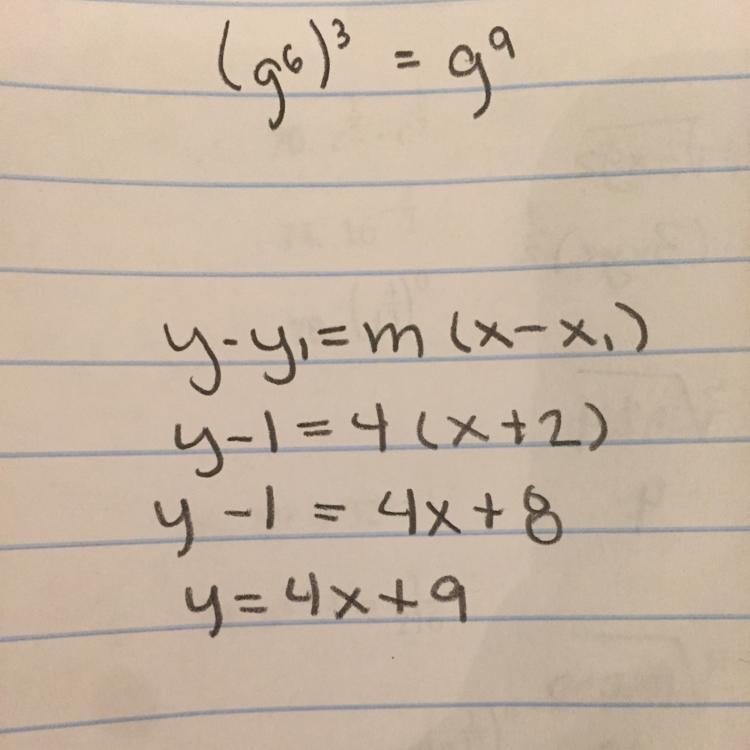 (g⁶)³ = g⁹
y-y₁=m(x-x₁)
y-1=4(x+2)
y-1=4x+8
y=4x+9